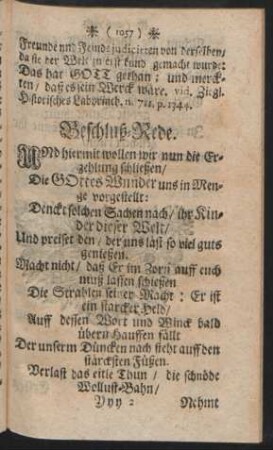 ( 1057 )
Freunde und Feinde judiciren von derselben /
da sie der Welt zu erst kund gemacht wurde:
Das hat GOTT gethan: und merck-
ten / daß es sein Werck wäre. vid. Ziegl.
Historisches Labyrinth. n. 711. p. 1744.
Beschluß-Rede.
UNd hiermit wollen wir nun die Er-
zehlung schließen /
Die GOttes Wunder uns in Men-
ge vorgestellt:
Denckt solchen Sachen nach / ihr Kin-
der dieser Welt /
Und preiset den / der uns läst so viel guts
genießen.
Macht nicht / daß Er im Zorn auff euch
muß lassen schießen
Die Strahlen seiner Macht: Er ist
ein starcker Held /
Auff dessen Wort und Winck bald
übern Hauffen fällt
Der unserm Düncken nach steht auff den
stärcksten Füßen.
Verlast das eitle Thun / die schnöde
Wollust-Bahn /
Yyy 2 Nehmt